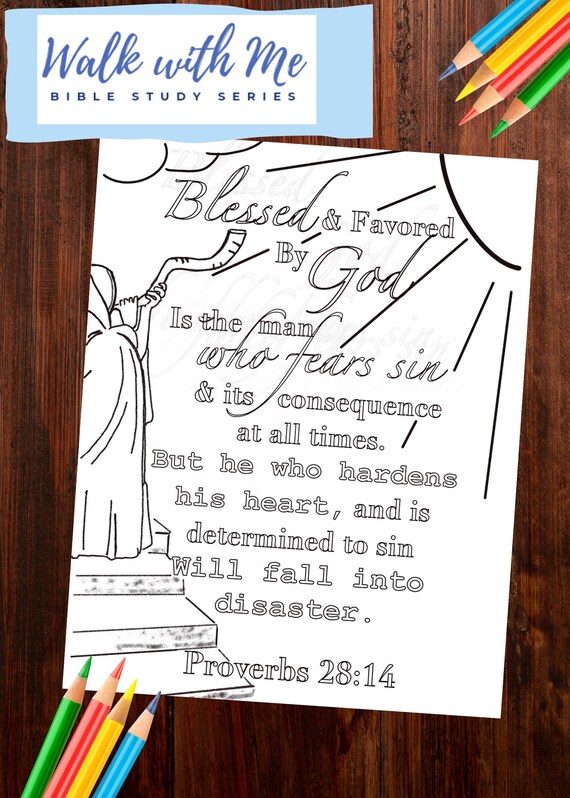 Walk with Me
BIBLE STUDY SERIES
Blessed & Favored
By God
Is the man
who fears sin
& its consequence
at all times.
But he who hardens
his heart, and is
determined to sin
Will fall into
disaster.
Proverbs 28:14